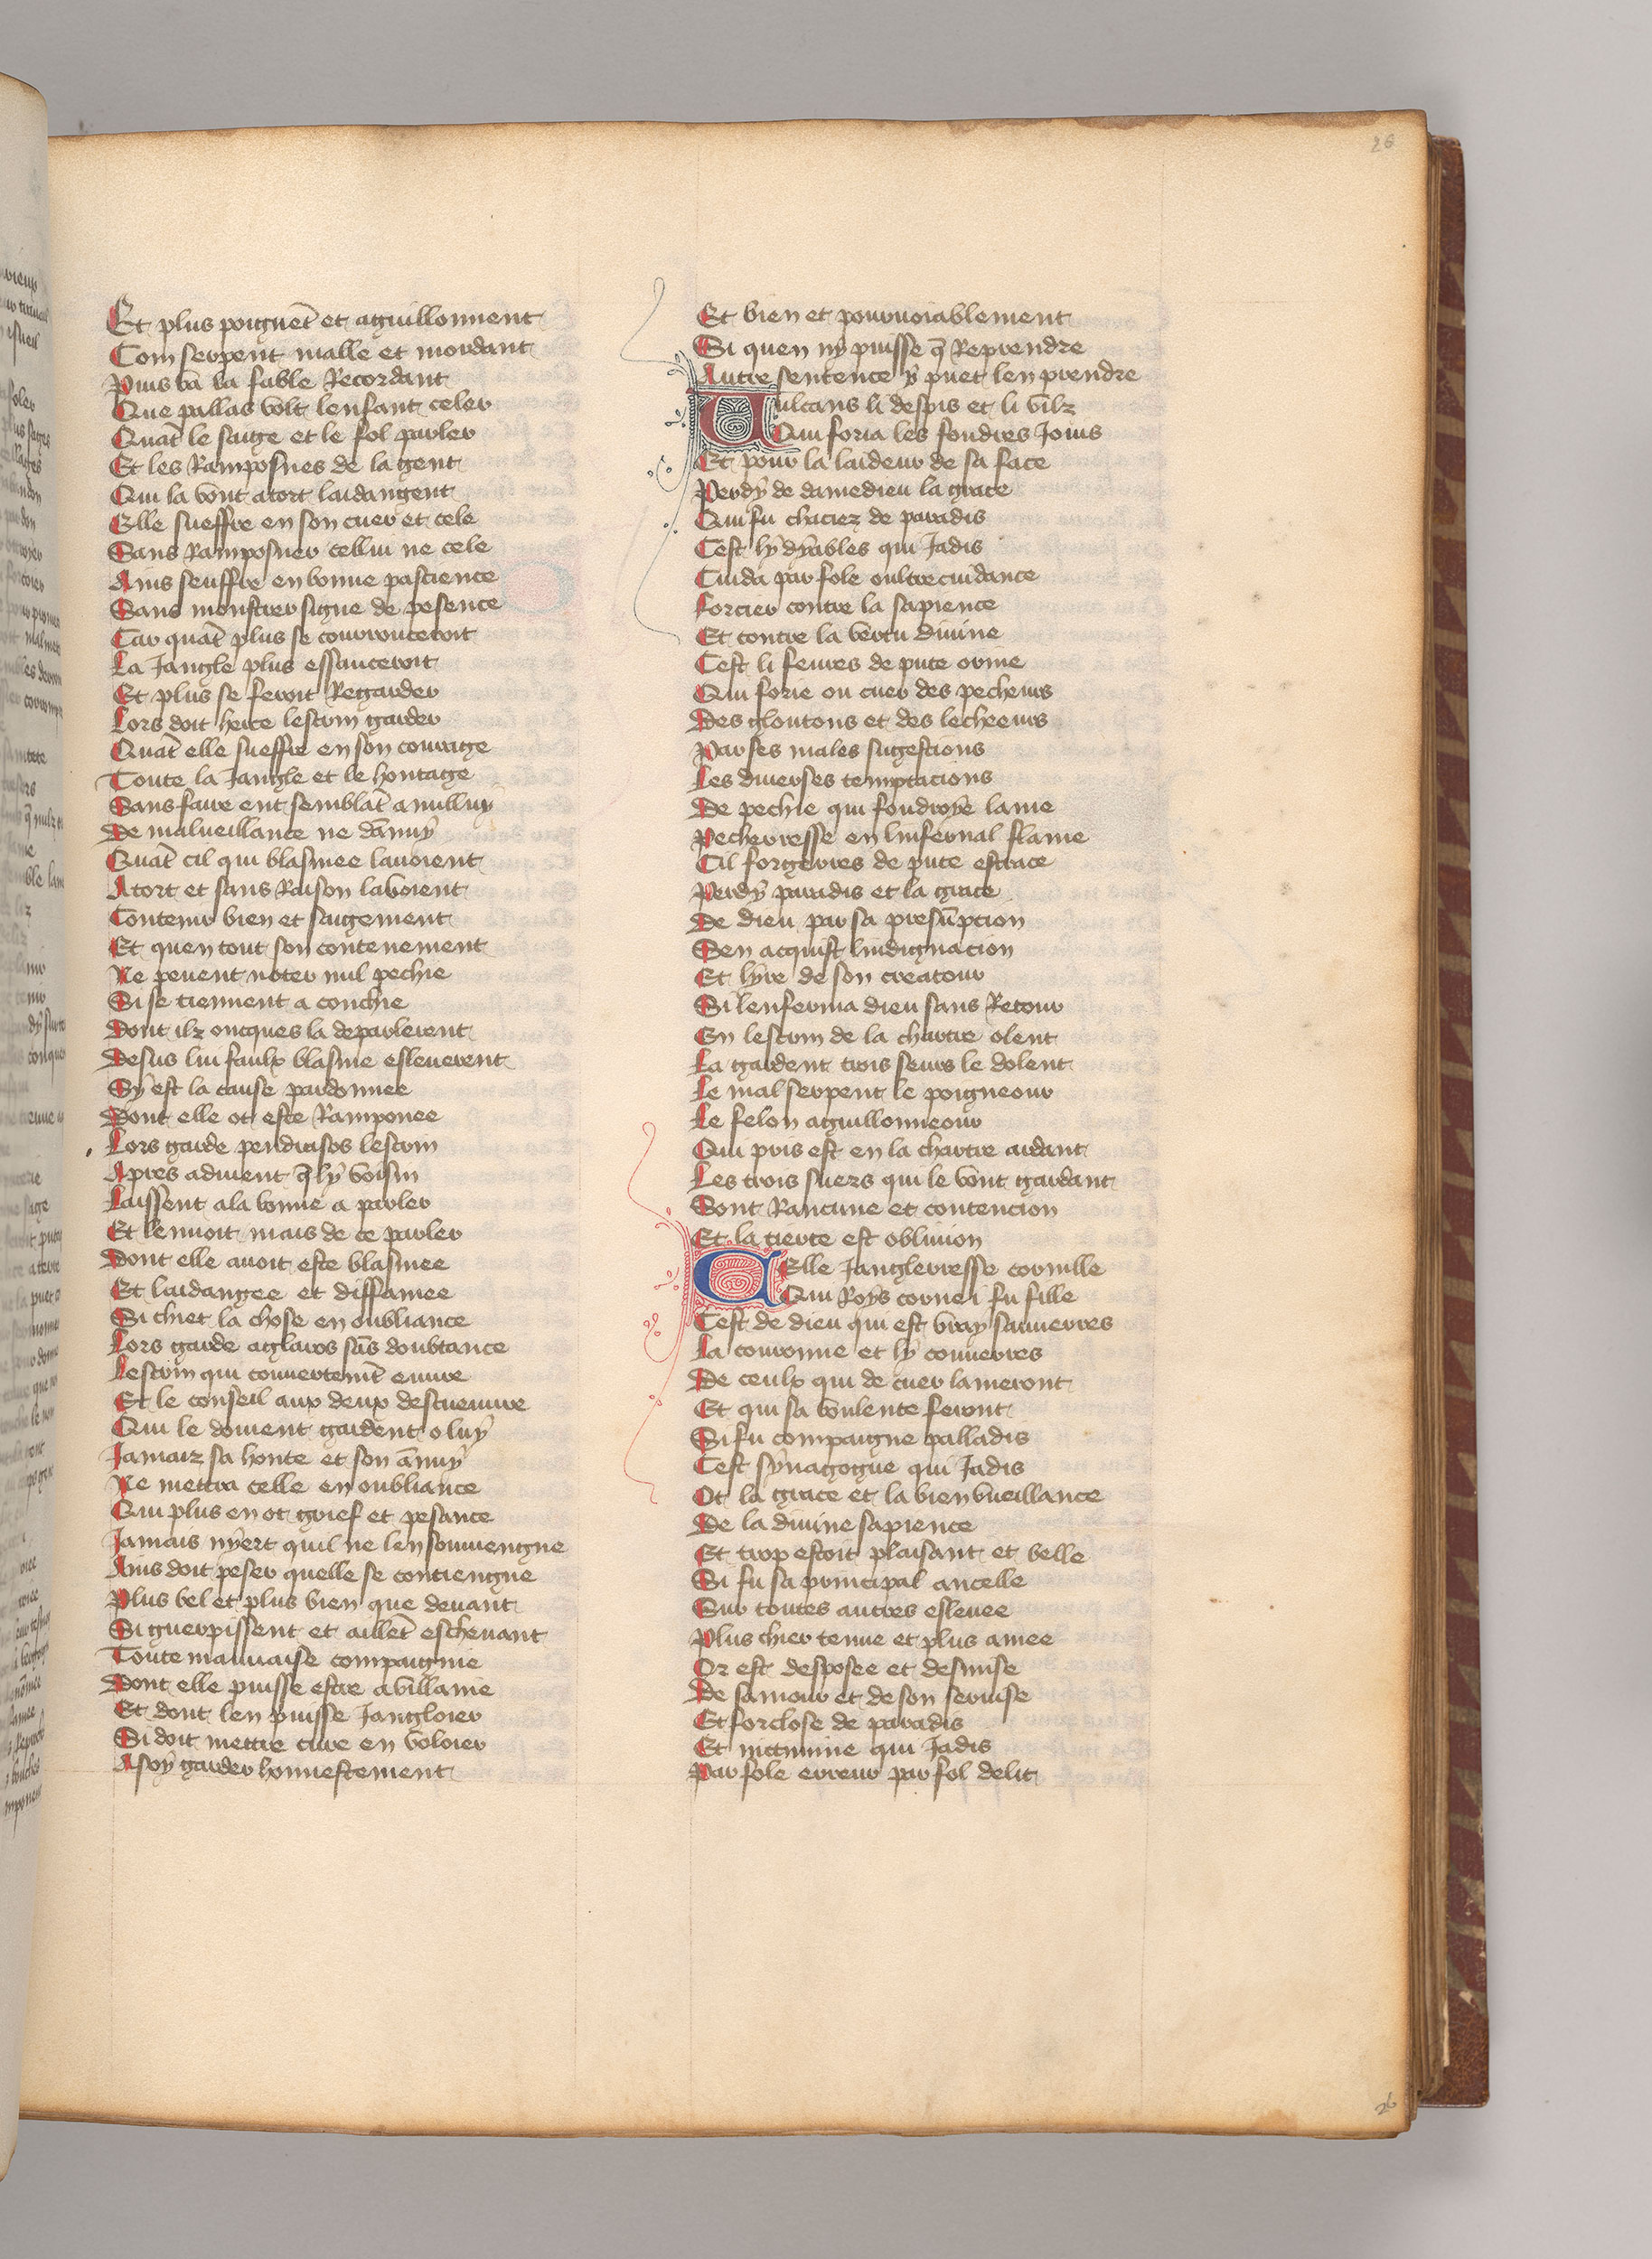 26
Et plus poiguēt et aguillonnent
Com serpent malle et mordant
Puis va la fable Recordant
Que pallas volt lenfant celer
Quāt le saige et le fol parler
Et les Ramposnes de la gent
Qui la vont atort laidangent
Elle sueffre en son cuer et cele
Sans Ramposner cellui ne cele
Ains seuffre en bonne pascience
Sans monstrer signe de pesence
Car quāt plus se courrouceroit
La Jangle plus essauceroit
Et plus se feroit Regarder
Lors doit herce lescrin garder
Quāt elle sueffre en son courage
Toute la Jangle et le hontage
Sans faire ent semblāt a nulluy
De malueillance ne dānuy
Quāt cil qui blasmee lauoient
Atort et sans Raison la voient
Contenir bien et saigement
Et quen tout son contenement
Ne peuent noter nul pechie
Si se tiennent a conchie
Dont ilz oncques la deparlerent
Desus lui faulx blasme esleuerent
Sy est la cause pardonnee
Dont elle ot este Ramponee
Lors garde pendrasos lescrin
Apres aduient q̄ ly voisin
Laissent a la bonne a parler
Et lennoit mais de ce parler
Dont elle auoit este blasmee
Et laidangee et diffamee
Si chiet la chose en oubliance
Lors garde aglaros sās doubtance
Lescrin qui couuertemēt euure
Et le conseil aux deux descueuure
Qui le doiuent gardent o luy
Jamaiz sa honte et son ānuy
Ne mettra celle en oubliance
Qui plus en ot grief et pesance
Jamais nyert quil ne len souuiengne
Ains doit peser quelle se contiengne
Plus bel et plus bien que deuant
Si guerpissent et aillēt escheuant
Toute mauuaise compaignie
Dont elle puisse estre avillanie
Et dont len puisse Jangloier
Si doit mettre cure en voloier
A soy garder honnestement
Et bien et pouruoiablement
Si quen ny puisse q̄ Reprendre
Autre sentence y puet len prendre
Uulcans li despis et li vilz
Qui foria les foudres Jouis
Et pour la laideur de sa face
Perdy de damedieu la grace
Qui fu chaciez de paradis
Cest ly dyables qui Jadis
Cuida par fole oultrecuidance
Forcier contre la sapience
Et contre la vertu diuine
Cest li feures de pute orine
Qui forie ou cuer des pecheurs
Des gloutons et des lecheeurs
Par ses males sugestions
Les diuerses temptacions
De pechie qui foudroye lame
Pecherresse en linfernal flame
Cil forgerres de pute estrace
Perdy paradis et la grace
De dieu par sa presūpcion
Sen acquist lindignacion
Et lyre de son creatour
Si lenferma dieu sans Retour
En lescrin de la chartre olent
La gardent trois seurs le dolent
Le mal serpent le poigneour
Le felon aguillonneour
Qui pris est en la chartre ardant
Les trois suers qui le vont gardant
Sont Rancune et contencion
Et la tierce est obliuion
Celle Janglerresse cornille
Qui Roys cornei fu fille
Cest de dieu qui est vray sauuerres
La couronne et ly couuerres
De ceulx qui de cuer lameront
Et qui sa voulente feront
Si fu compaigne palladis
Cest synagogue qui Jadis
Ot la grace et la bienvueillance
De la diuine sapience
Et trop estoit plaisant et belle
Si fu sa principal ancelle
Sur toutes autres esleuee
Plus chier tenue et plus amee
Or est desposee et desmise
De samour et de son seruise
Et forclose de paradis
Et nictimine qui Jadis
Par fole erreur par fol delit
26